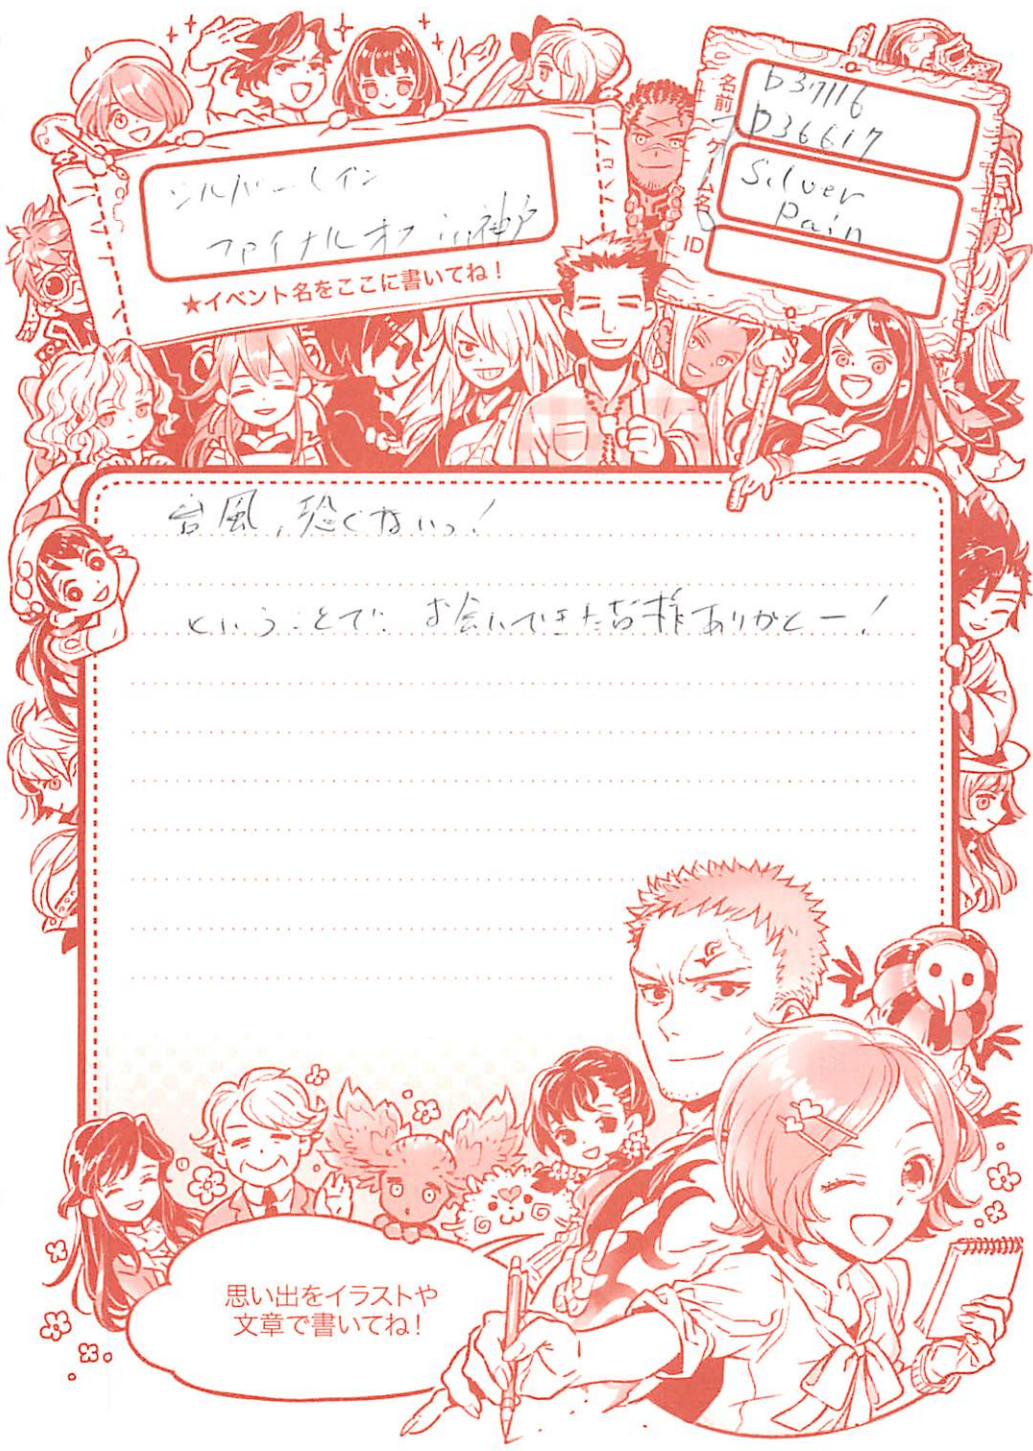 シルバーレイン
ファイナルオフ in 神戸
★イベント名をここに書いてね！
名前
b37116
p36617
ゲーム名
Silver
Pain
ID
台風、恐くないっ！
ということで、お会いできた皆様ありがとー！
思い出をイラストや
文章で書いてね！